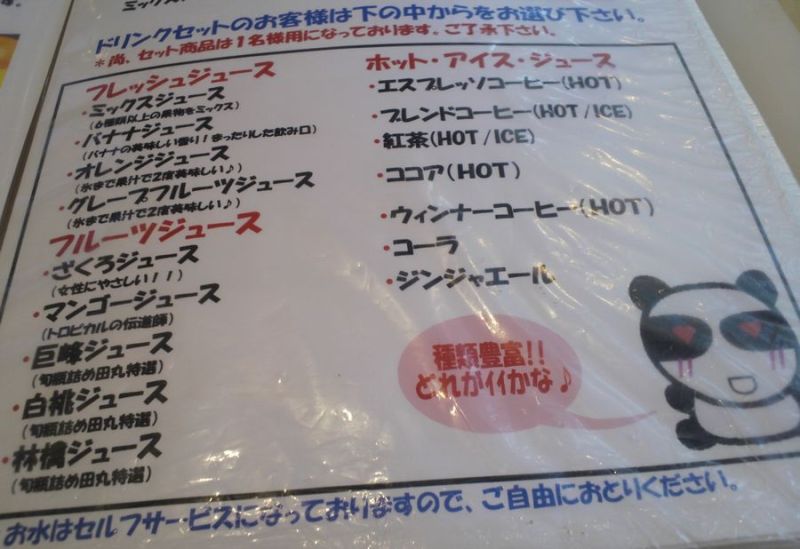 ミックス
ドリンクセットのお客様は下の中からをお選び下さい。
＊尚、セット商品は1名様用になっております。ご了承下さい。
フレッシュジュース
・ミックスジュース
(6種類以上の果物をミックス)
・バナナジュース
(バナナの美味しい香り!まったりした飲み口)
・オレンジジュース
(氷まで果汁で2度美味しい♪)
・グレープフルーツジュース
(氷まで果汁で2度美味しい♪)
フルーツジュース
・ざくろジュース
(女性にやさしい!!)
・マンゴージュース
(トロピカルの伝道師)
・巨峰ジュース
(旬瓶詰め田丸特選)
・白桃ジュース
(旬瓶詰め田丸特選)
・林檎ジュース
(旬瓶詰め田丸特選)
ホット・アイス・ジュース
・エスプレッソコーヒー(HOT)
・ブレンドコーヒー(HOT/ICE)
・紅茶(HOT/ICE)
・ココア(HOT)
・ウィンナーコーヒー(HOT)
・コーラ
・ジンジャエール
種類豊富!!
どれがイイかな♪
お水はセルフサービスになっておりますので、ご自由におとりください。